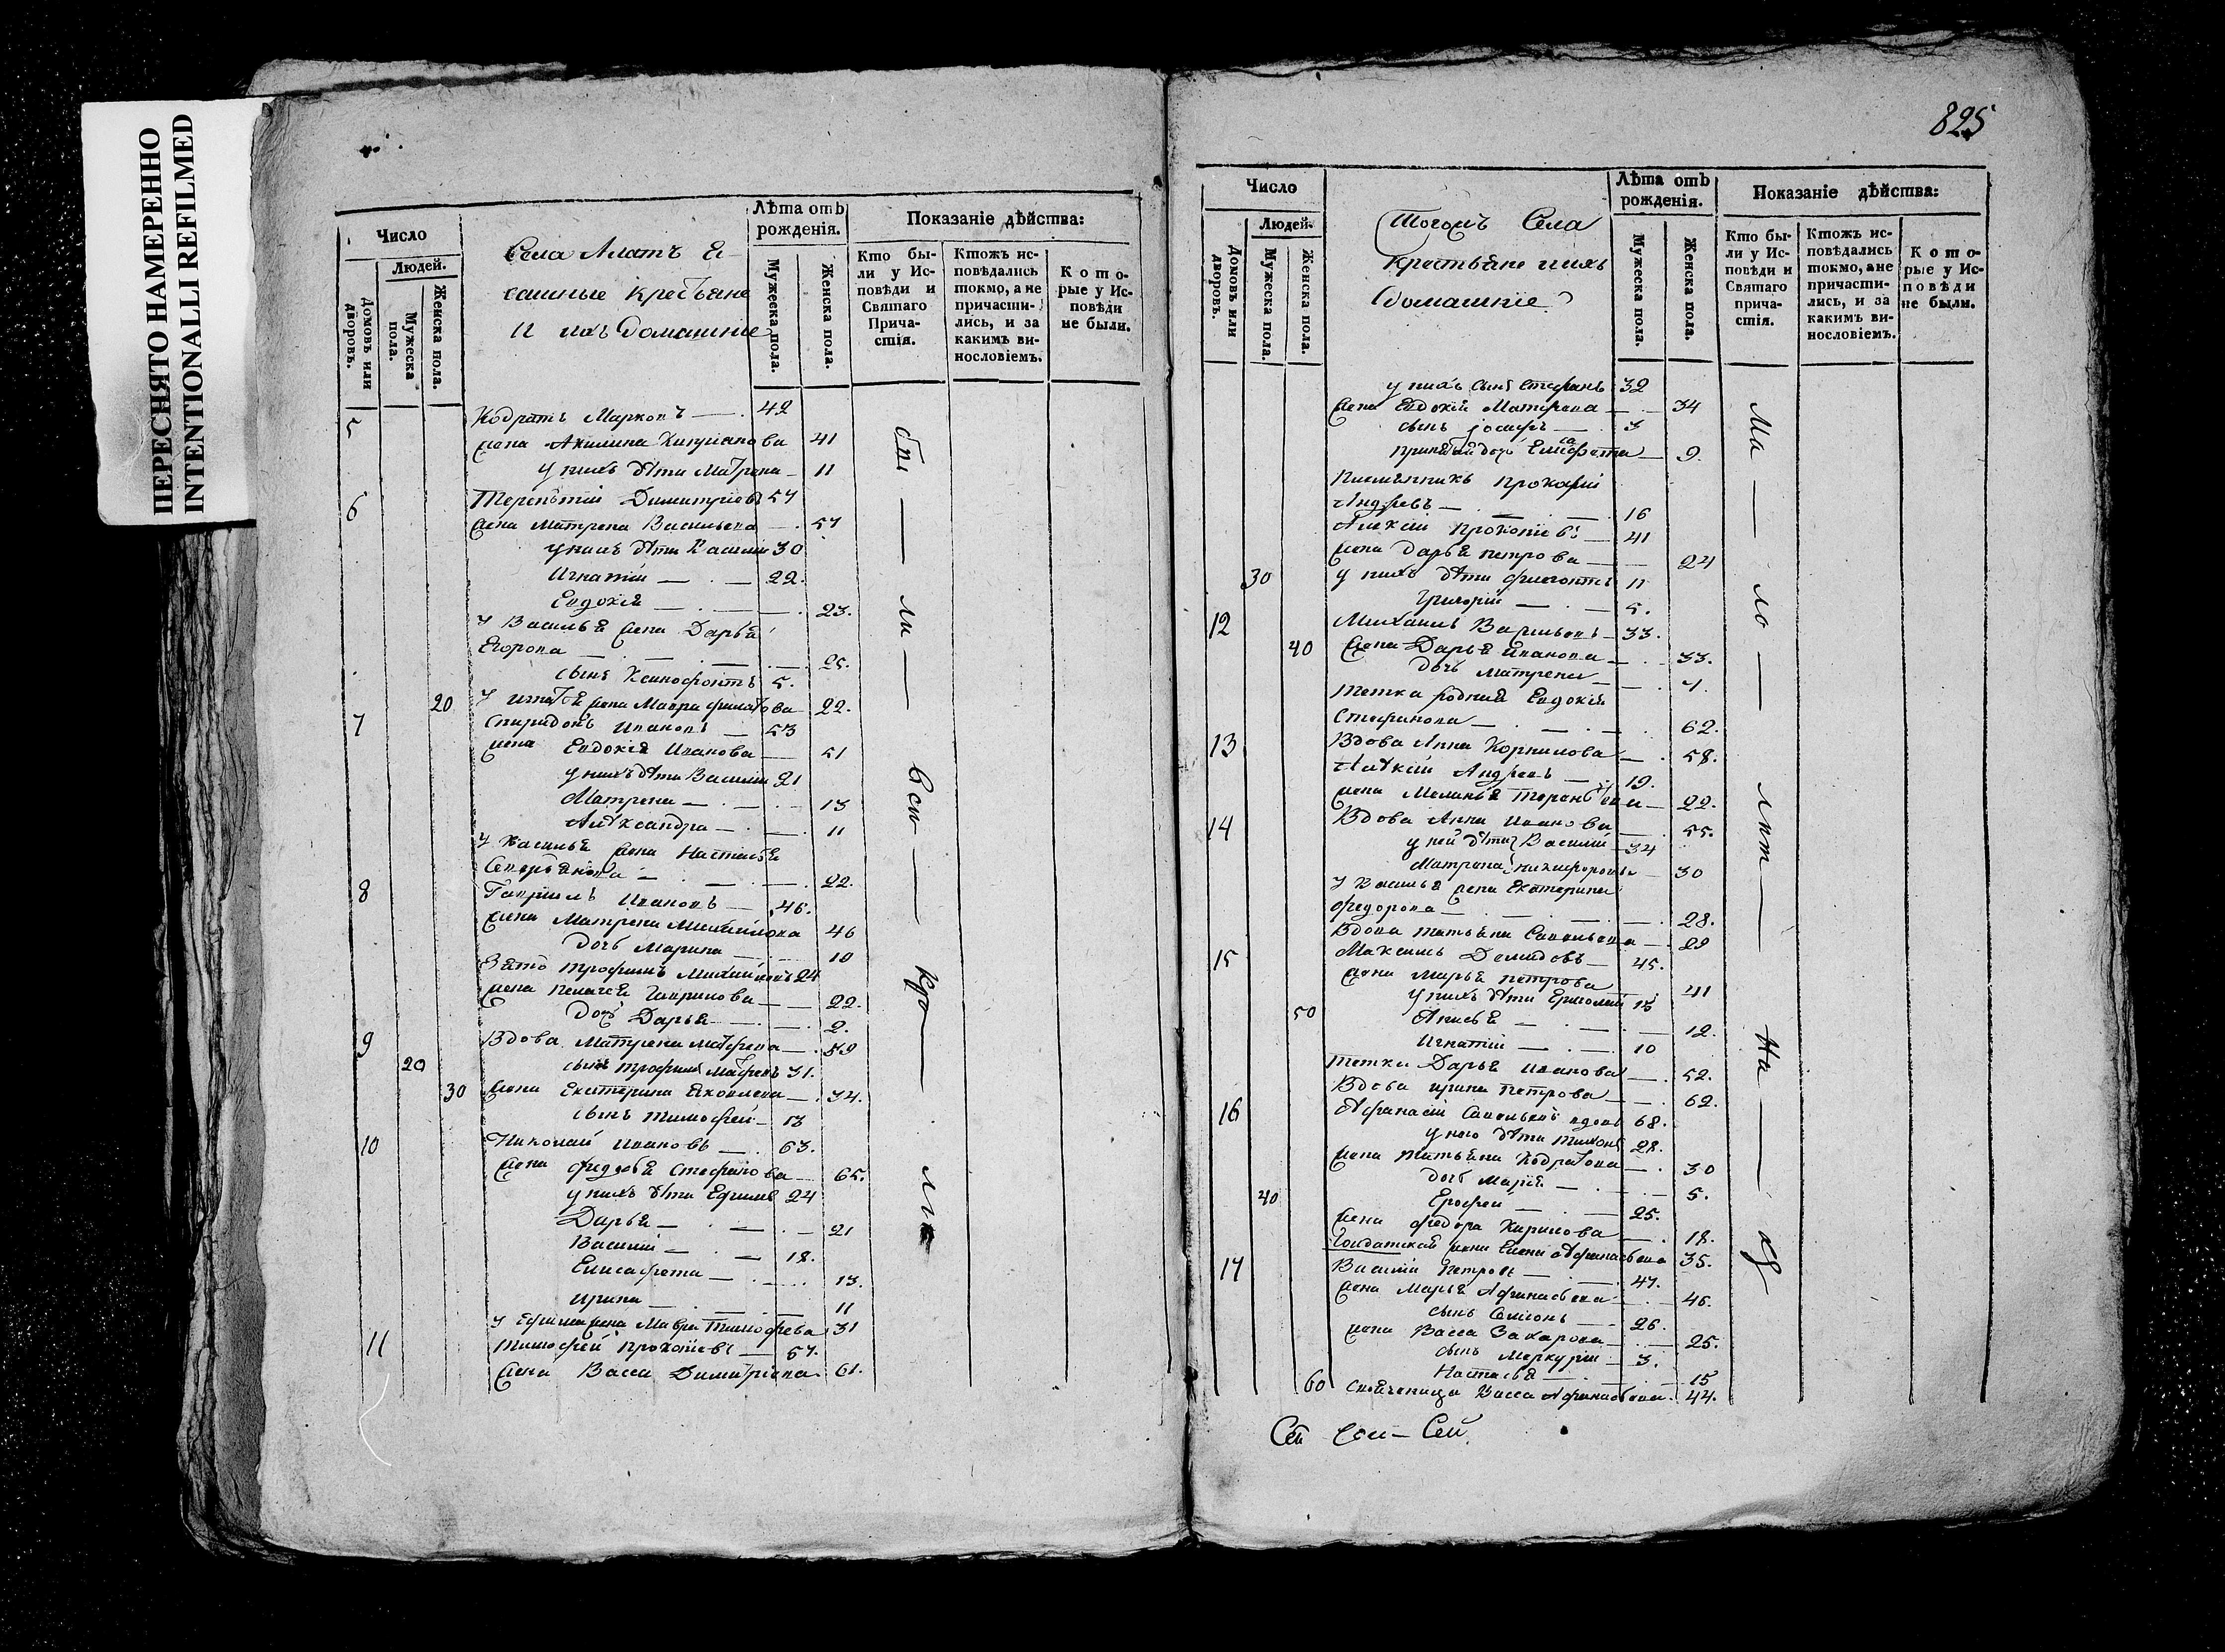 ПЕРЕСНЯТО НАМЕРЕННО
INTENTIONALLI REFILMED
Число
Людей.
Домовъ или дворовъ.
Мужеска пола.
Женска пола.
Села Алатъ
крестьяне
и ихъ домашніе
Лѣта отъ рожденія.
Мужеска пола.
Женска пола.
Показаніе дѣйства:
Кто бы-
ли у Ис-
повѣди и
Святаго
Прича-
стія.
Ктожъ ис-
повѣдались
токмо, а не
причасти-
лись, и за
какимъ ви-
нословіемъ.
К о т о-
рые у Ис-
повѣди
не были.
5 Кодратъ Марковъ — 42
жена Акилина 41
у нихъ дѣти Матрена — 11
6 Терентій Димитріевъ 57
жена Матрена Васильева — 57
у нихъ дѣти Василій 30
Игнатій — 22.
Евдокія — 23.
у Василья жена Дарья
Егорова — 25.
сынъ Ксенофонтъ 5.
20 у Игнатья жена Мавра Филатова 22.
7 Спиридонъ Ивановъ — 53
жена Евдокія Иванова — 51
у нихъ дѣти Василій 21
Матрена — 13
Александра — 11
у Василья жена Настасья
— 22.
8 Гавріилъ Ивановъ — 46.
жена Матрена Михайлова 46
дочь Марина — 10
Зять Трофимъ 24
жена Пелагея Гаврилова — 22.
дочь Дарья — 2.
9 Вдова Матрена — 59
20 сынъ Трофимъ 31.
30 жена Екатерина Яковлева — 34.
сынъ Тимофей — 13
10 Николай Ивановъ — 63.
жена Федосья Стефанова — 65.
у нихъ дѣти Ефимъ 24
Дарья — 21
Василій — 18.
Елисавета — 13.
Ирина — 11
у Ефима жена Мавра Тимофеева 31
11 Тимофей Прокопіевъ — 57.
жена Васса Димитріева 61.
бы — ли — всю — — ли
825
Число
Людей.
Домовъ или дворовъ.
Мужеска пола.
Женска пола.
Тогожъ Села
крестьяне ихъ
домашніе
Лѣта отъ рожденія.
Мужеска пола.
Женска пола.
Показаніе дѣйства:
Кто бы-
ли у Ис-
повѣди и
Святаго
прича-
стія.
Ктожъ ис-
повѣдались
токмо, а не
причасти-
лись, и за
какимъ ви-
нословіемъ.
К о т о-
рые у Ис-
п о в ѣ д и
не были.
у нихъ сынъ Стефанъ 32
жена Евдокія — 34
сынъ Іосифъ — 3
дочь Елисавета — 9.
Племянникъ Прокопій
Андреевъ — 16
Алексій Прокопіевъ — 41
жена Дарья Петрова — 24
30 у нихъ дѣти 11
Григорій — 5.
12 Михаилъ Васильевъ — 33.
40 жена Дарья Иванова — 33.
дочь Матрена — 7.
тетка родная Евдокія
Стефанова — 62.
13 Вдова Анна Корнилова — 58.
Алексій Андреевъ — 19.
жена Меланья Терентьева — 22.
14 Вдова Анна Иванова — 55.
у ней дѣти Василій — 34
Матрена Никифорова — 30
у Василья жена Екатерина
Федорова — 28.
Вдова Татьяна Савельева — 29
15 Максимъ Демидовъ — 45.
жена Марья Петрова — 41
у нихъ дѣти Ермолай 13
50 Анисья — 12.
Игнатій — 10
тетка Дарья Иванова — 52.
Вдова Ирина Петрова — 62.
16 Афанасій Савельевъ вдовъ 68.
у него дѣти Тихонъ 28.
жена Татьяна Кодратова — 30
дочь Марія — 5.
40 Ерофей — 25.
жена Федора Кирилова — 18.
Солдатская жена Елена Афанасьева 35.
17 Василій Петровъ — 47.
жена Марья Афанасьева — 46.
сынъ Семіонъ — 26.
жена Васса Захарова — 25.
сынъ Меркурій — 3.
Настасья — 15
60 свояченица Васса Афанасьева 44.
Ма — ло — лѣт — на